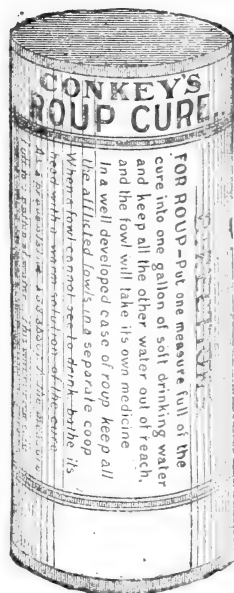 CONKEY'S
ROUP CURE
FOR ROUP-Put one measure full of the
cure into one gallon of soft drinking water
and keep all the other water out of reach,
and the fowl will take its own medicine
In a well developed case of roup keep all
the afflicted fowls in a separate coop
When a fowl cannot see to drink bathe its
head with a warm solution of the cure
As a preventive